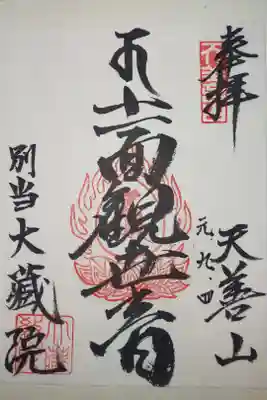 奉拝
天善山
元、九、四
十一面観世音
別当大蔵院